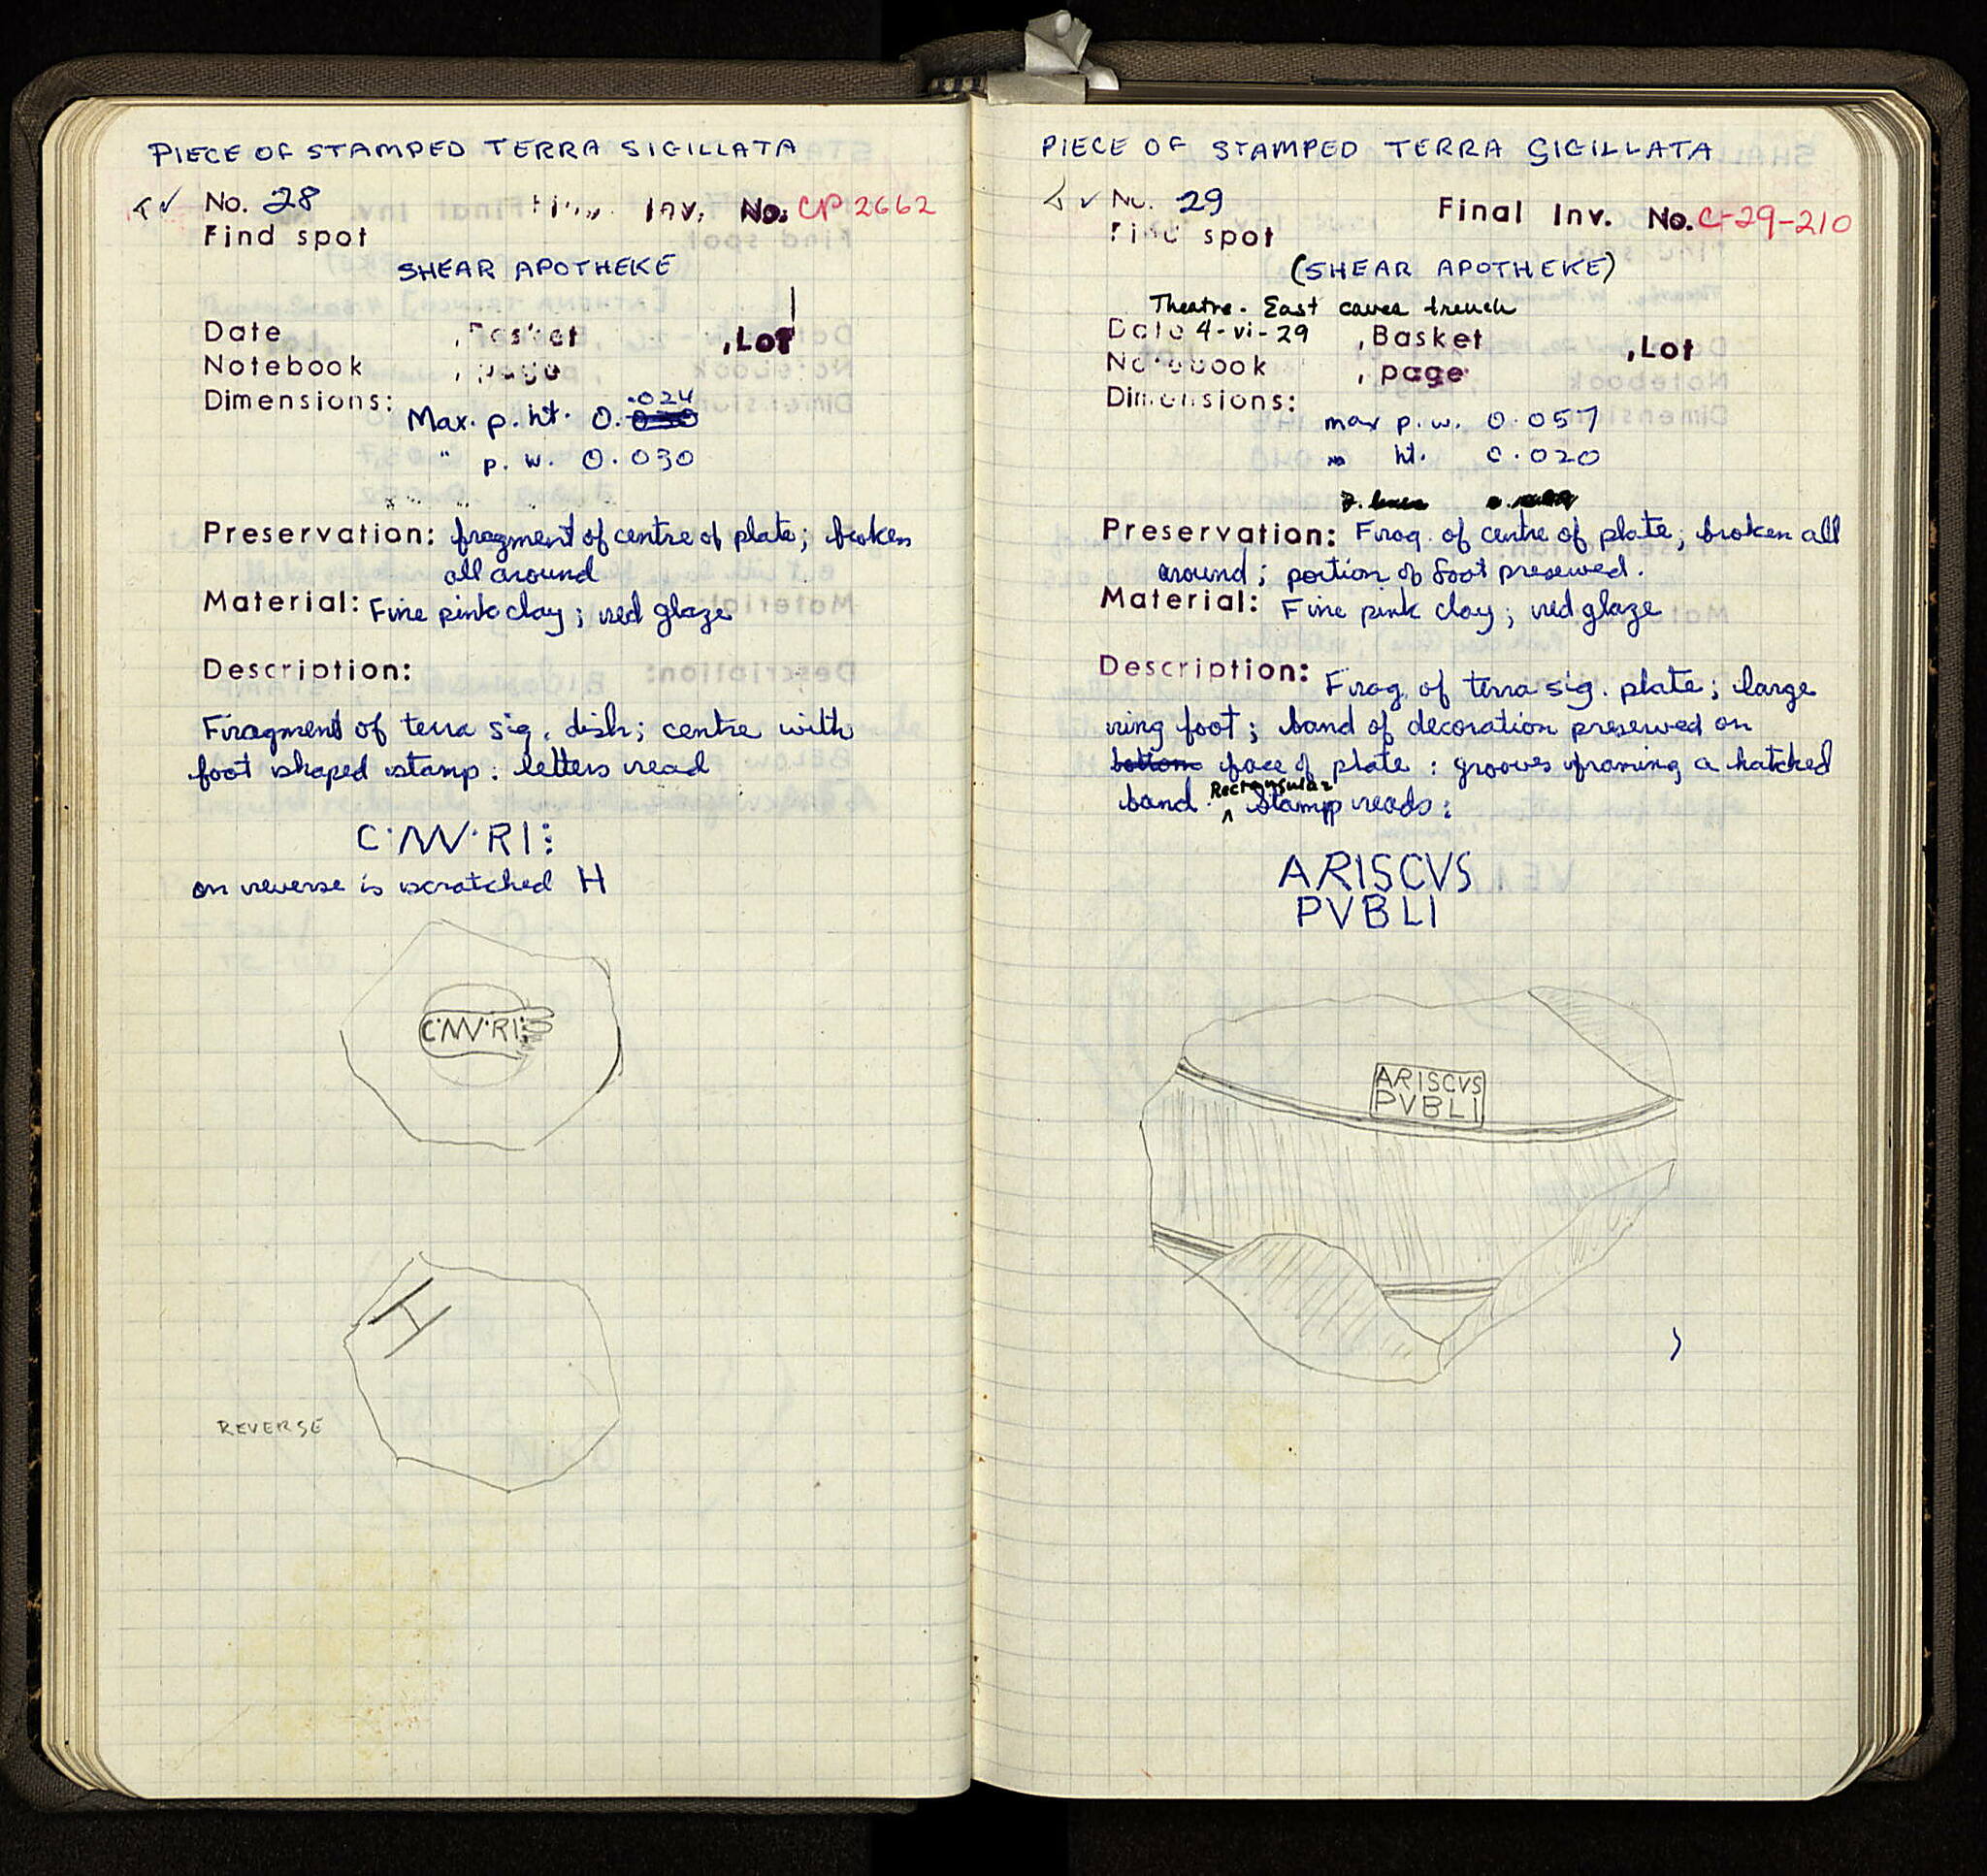 PIECE OF STAMPED TERRA SIGILLATA
No. 28 Inv. No. CP 2662
Find spot
SHEAR APOTHEKE
Date , Basket , Lot
Notebook , page
.024
Dimensions: Max. p. ht. 0.030
" p. w. 0.030
Preservation: fragment of centre of plate; broken
all around
Material: Fine pink clay; red glaze
Description:
Fragment of terra sig. dish; centre with
foot shaped stamp: letters read
C·NV·RI:
on reverse is scratched H
C·NV·RI:
H
REVERSE
PIECE OF STAMPED TERRA SIGILLATA
No. 29 Final Inv. No. C-29-210
Find spot
(SHEAR APOTHEKE)
Theatre. East cavea trench
Date 4-vi-29 , Basket , Lot
Notebook , page
Dimensions:
max p. w. 0.057
ht. 0.020
Preservation: Frag. of centre of plate; broken all
around; portion of foot preserved.
Material: Fine pink clay; red glaze
Description: Frag. of terra sig. plate; large
ring foot; band of decoration preserved on
bottom face of plate: grooves framing a hatched
band. Rectangular Stamp reads:
ARISCVS
PVBLI
ARISCVS
PVBLI